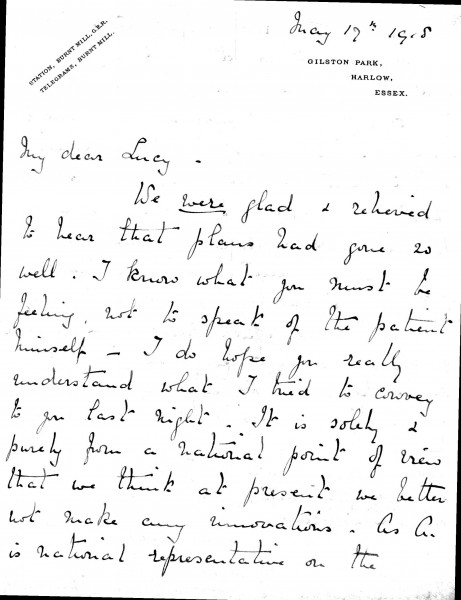 STATION, BURNT MILL, G.E.R.
TELEGRAMS, BURNT MILL.
May 17th 1918
GILSTON PARK,
HARLOW,
ESSEX.
My dear Lucy -
We were glad & relieved
to hear that plans had gone so
well. I know what you must be
feeling, not to speak of the patient
himself - I do hope you really
understand what I tried to convey
to you last night. It is solely &
purely from a national point of view
that we think at present we better
not make any innovations. As A.
is national representative on the